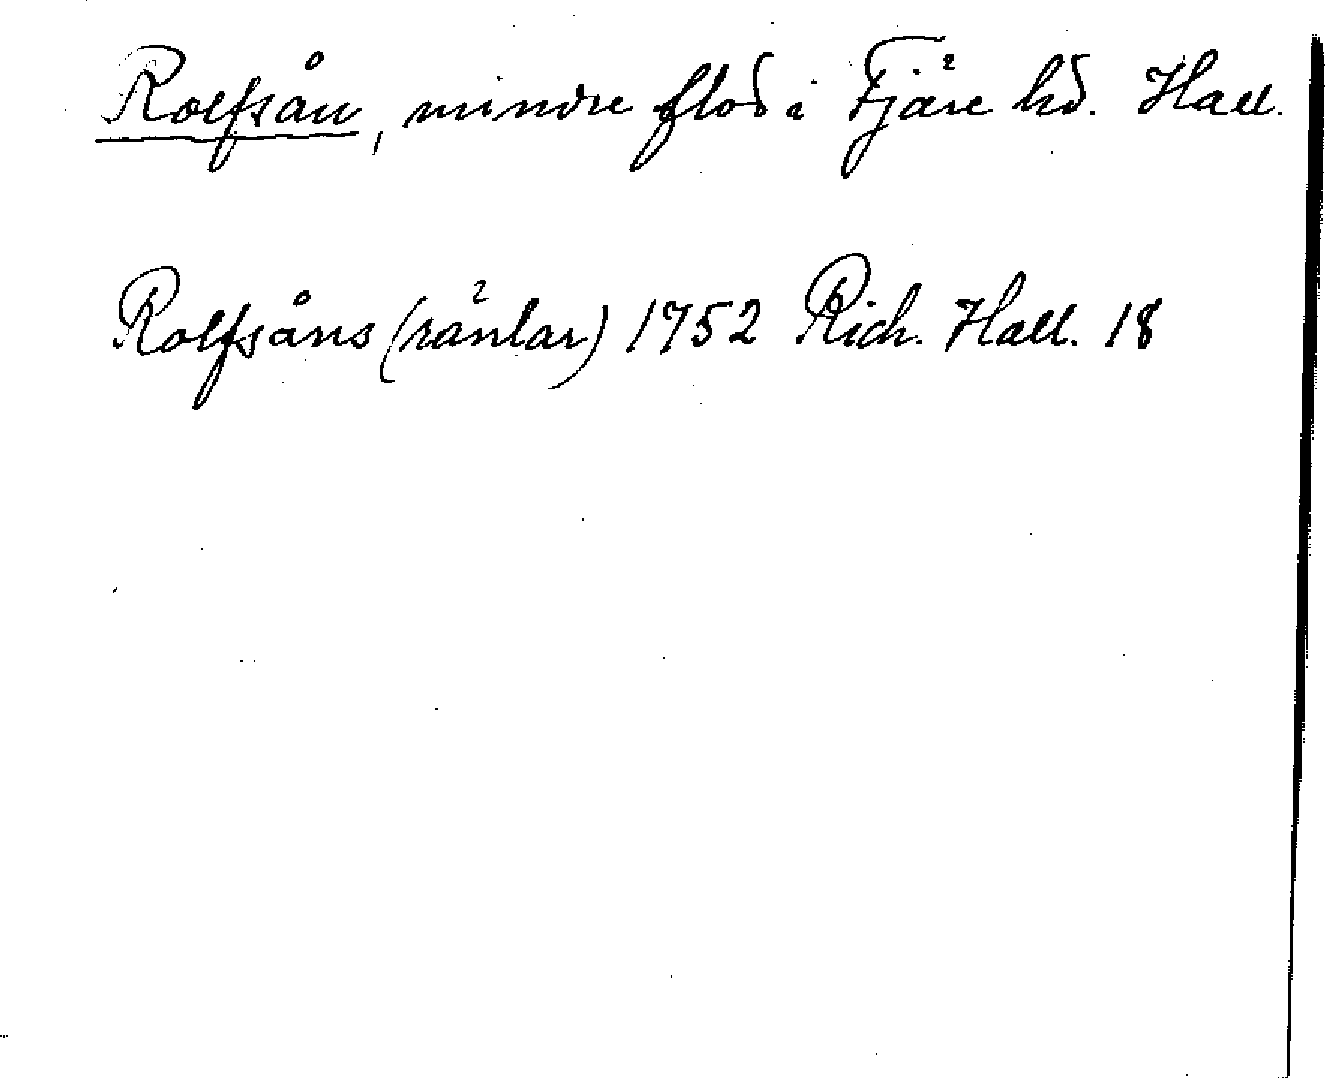 Rolfsån, mindre flod i Fjäre hd. Hall.
Rolfsåns (räntar) 1752 Rich. Hall. 18